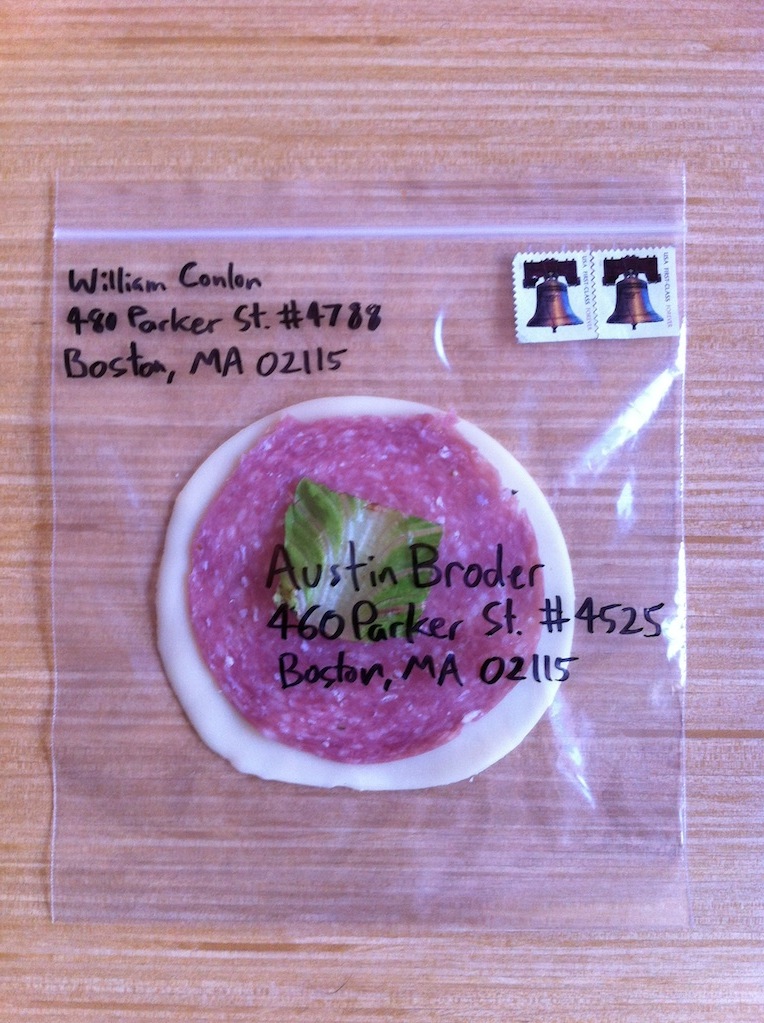 William Conlon
480 Parker St. #4788
Boston, MA 02115
USA FIRST-CLASS FOREVER
USA FIRST-CLASS FOREVER
Austin Broder
460 Parker St. #4525
Boston, MA 02115